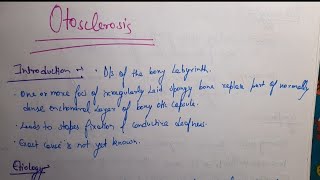 Otosclerosis
Introduction :- • D/s of the bony labyrinth.
• One or more foci of irregularly laid spongy bone replace part of normally
dense enchondral layer of bony otic capsule.
• Leads to stapes fixation & conductive deafness.
• Exact cause is not yet known.
Etiology